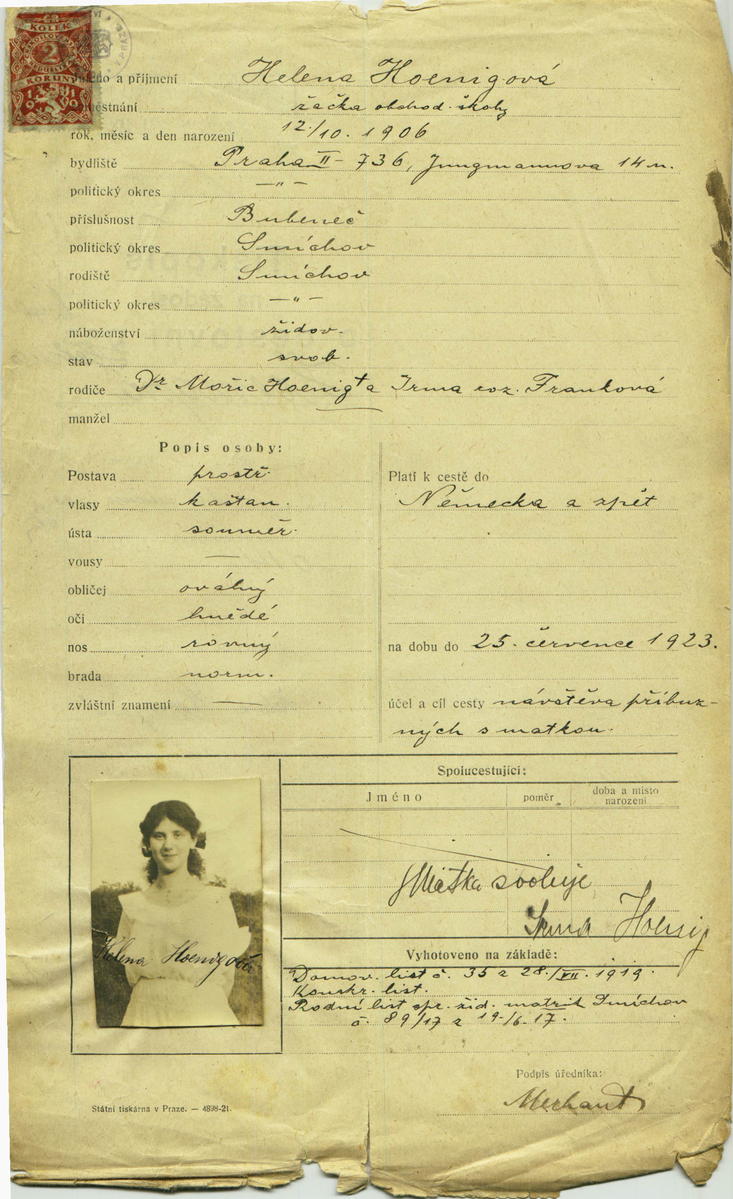 KOLEK
2
KORUNY
1919
jméno a příjmení Helena Hoenigová
zaměstnání žačka obchod. školy
rok, měsíc a den narození 12/10. 1906
bydliště Praha II - 736, Jungmannova 14 n.
politický okres —"—
příslušnost Bubeneč
politický okres Smíchov
rodiště Smíchov
politický okres —"—
náboženství židov.
stav svob.
rodiče Dr Mořic Hoenig † a Irma roz. Franková
manžel
Popis osoby:
Postava prostř.
vlasy kaštan.
ústa souměr.
vousy —
obličej oválný
oči hnědé
nos rovný
brada norm.
zvláštní znamení —
Platí k cestě do
Německa a zpět
na dobu do 25. července 1923.
účel a cíl cesty návštěva příbuz-
ných s matkou.
Spolucestující:
Jméno poměr doba a místo narození
Matka svoluje
Irma Hoenig
Helena Hoenigová
Vyhotoveno na základě:
Domov. list č. 35 z 28./VII. 1919.
Konskr. list.
Rodní list spr. žid. matrik Smíchov
č. 89/17 z 19./6. 17.
Podpis úředníka:
Státní tiskárna v Praze. — 4898-21.